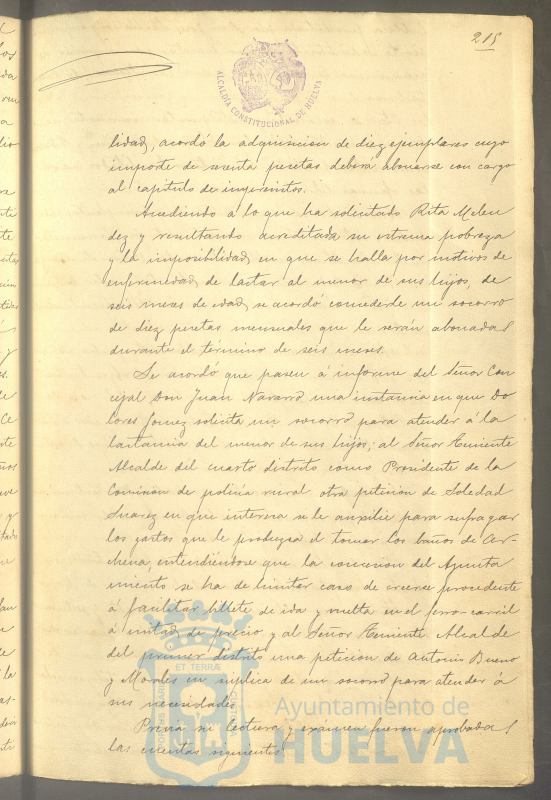 215
ALCALDIA CONSTITUCIONAL DE HUELVA
lidad, acordó la adquisicion de diez ejemplares cuyo
importe de sesenta pesetas deberá abonarse con cargo
al capitulo de imprevistos.
Accediendo á lo que ha solicitado Rita Melen
dez y resultando acreditada su estrema pobreza
y la imposibilidad en que se halla por motivos de
enfermedad de lactar al menor de sus hijos, de
seis meses de edad, se acordó concederle un socorro
de diez pesetas mensuales que le serán abonadas
durante el término de seis meses.
Se acordó que pasen á informe del Señor Con
cejal Don Juan Navarro una instancia en que Do
lores Gomez solicita un socorro para atender á la
lactancia del menor de sus hijos; al Señor Teniente
Alcalde del cuarto distrito como Presidente de la
Comision de policia rural otra peticion de Soledad
Suarez en que interesa se le auxilie para sufragar
los gastos que le produzca el tomar los baños de Ar-
chena, entendiéndose que la concesion del Ayunta
miento se ha de limitar caso de creerse procedente
á facilitar billete de ida y vuelta en el ferro-carril
á mitad de precio y al Señor Teniente Alcalde
del primer distrito una peticion de Antonio Bueno
y Morales en súplica de un socorro para atender á
sus necesidades.
Previa su lectura y exámen fueron aprobadas
las cuentas siguientes:
ET TERRÆ
Ayuntamiento de
HUELVA